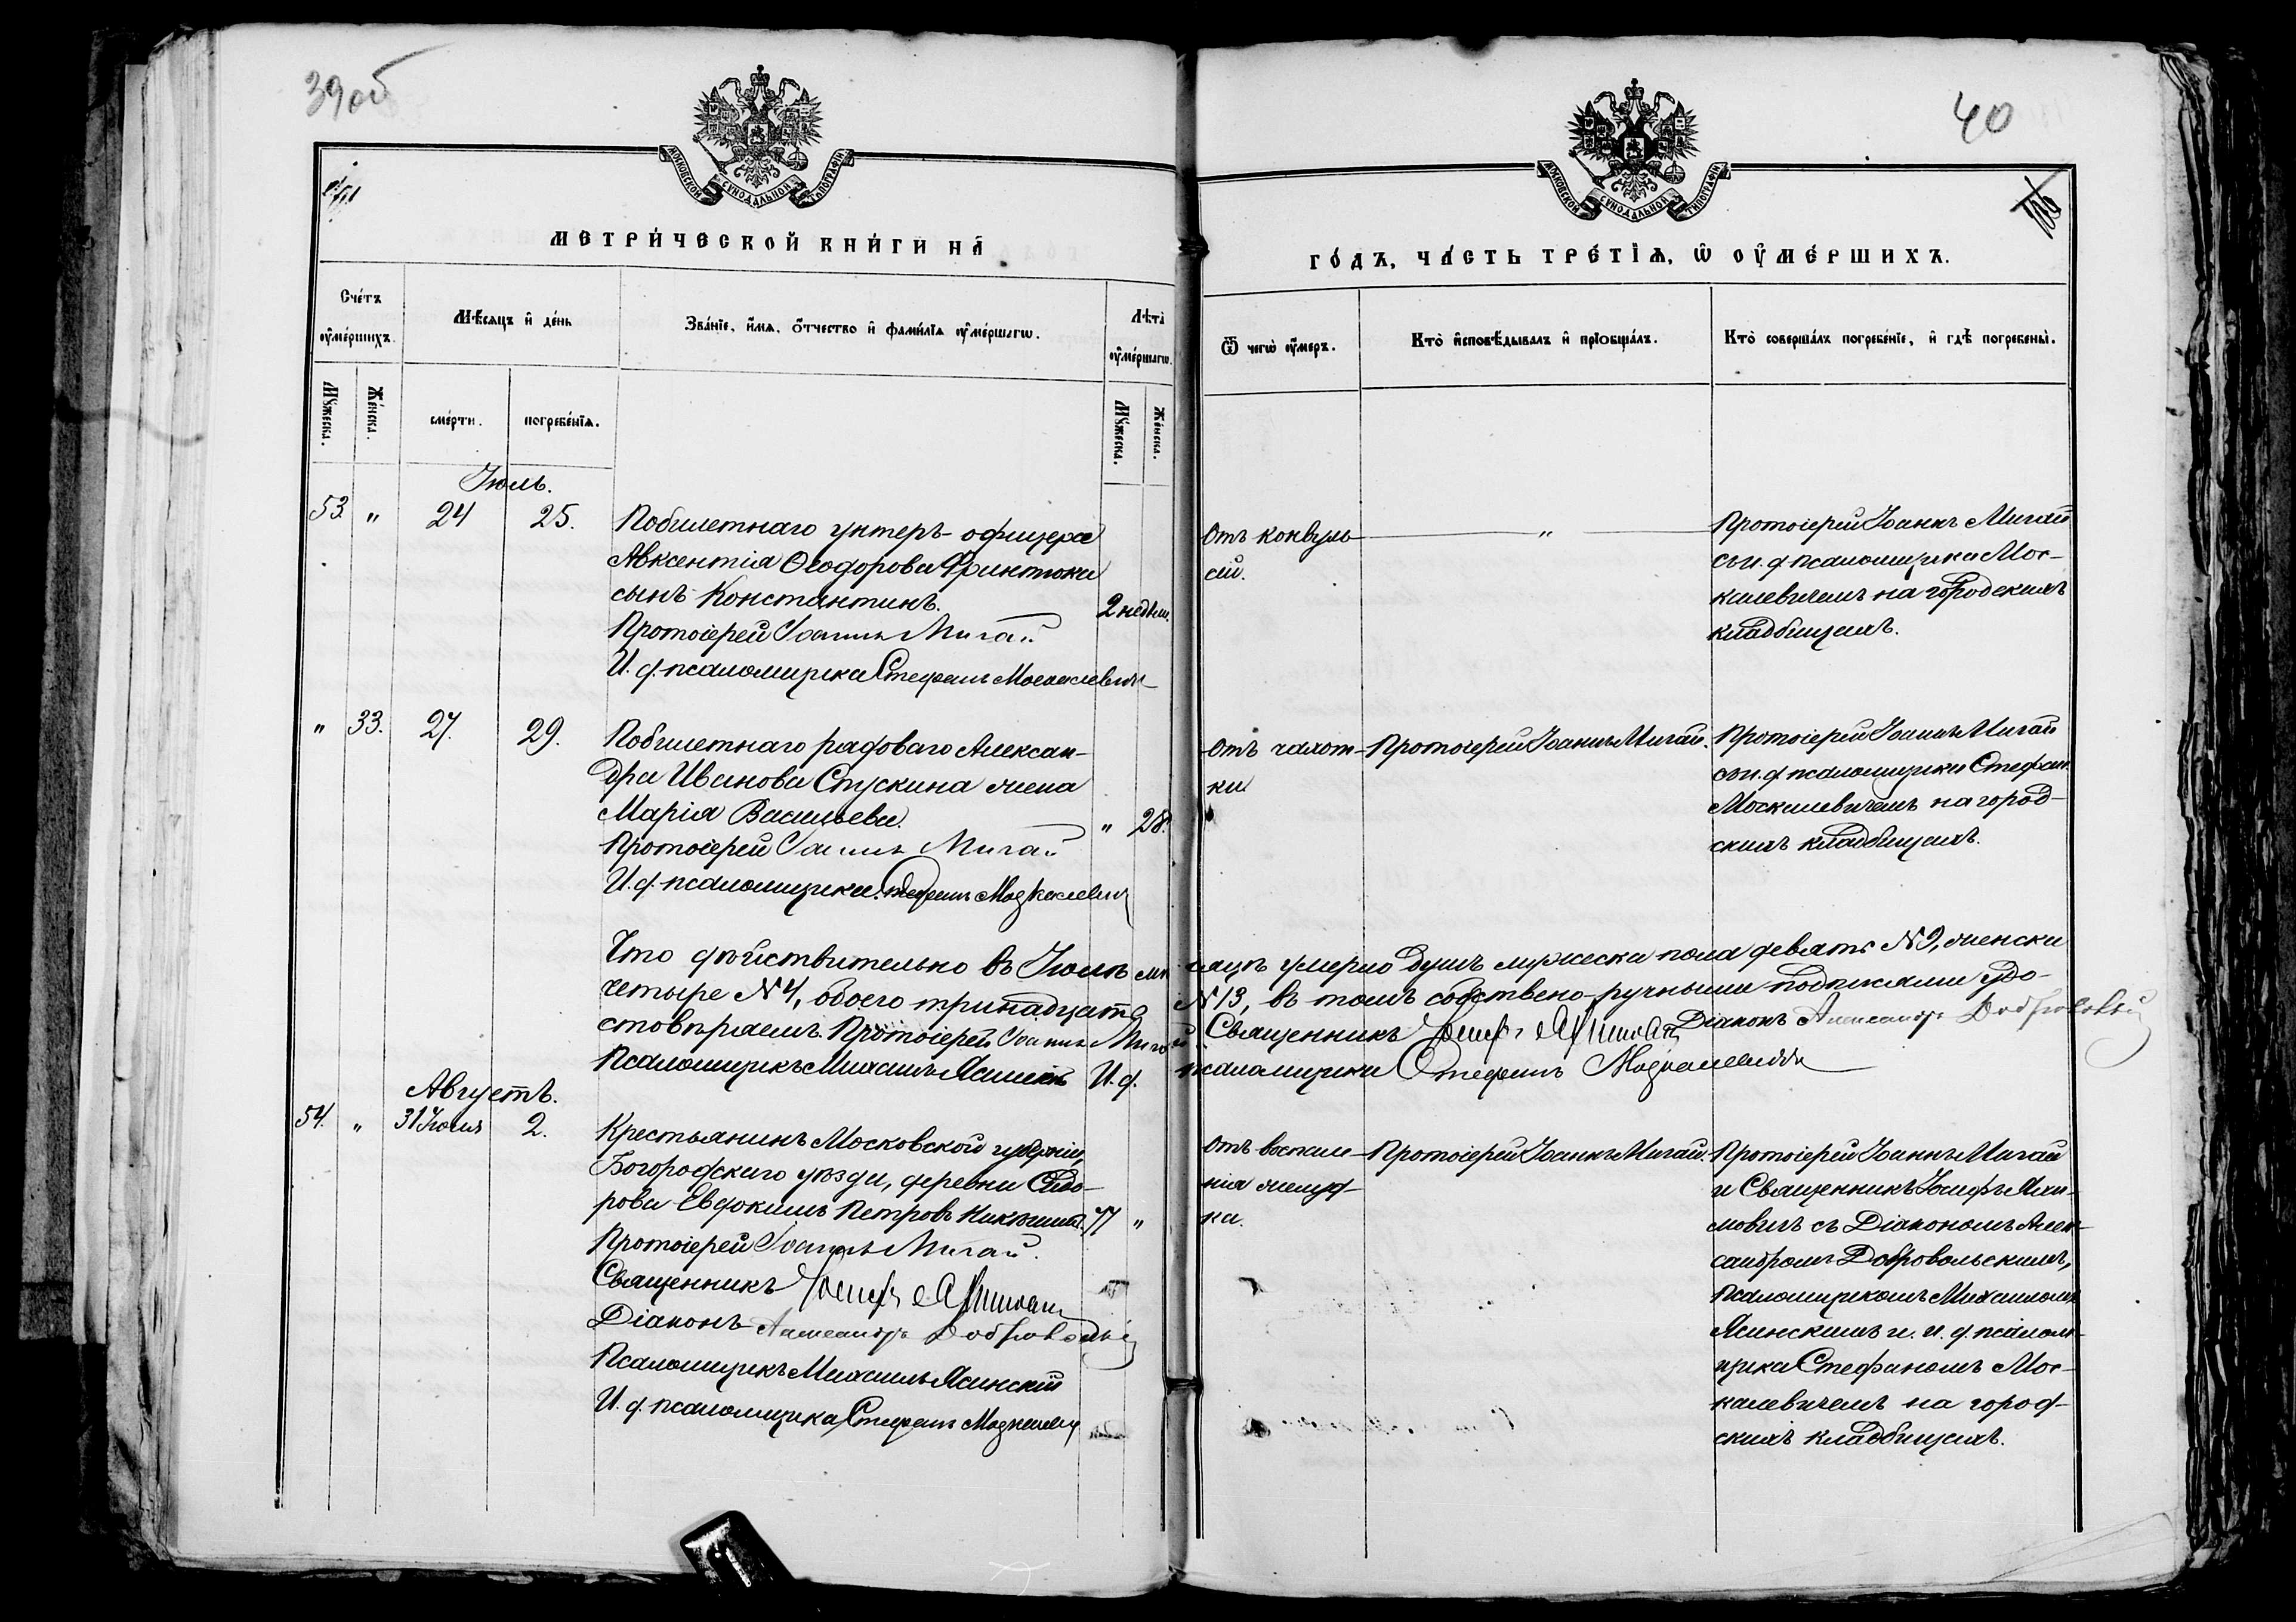 39 об
40
МОСКОВСКОЙ СѴНОДАЛЬНОЙ ТИПОГРАФІИ
МОСКОВСКОЙ СѴНОДАЛЬНОЙ ТИПОГРАФІИ
МЕТРИ́ЧЕСКОЙ КНИ́ГИ НА̀
ГО́ДЪ, ЧА́СТЬ ТРЕ́ТІѦ, Ѽ ОУ҆МЕ́РШИХЪ.
Сче́тъ оу҆ме́ршихъ.
Мѣ́сяцъ и҆ де́нь
Зва́нїе, и҆́мя, ѻ҆́тчество и҆ фами́лїя оу҆ме́ршагѡ.
Лѣта̀ оу҆ме́ршагѡ.
Ѿ чегѡ̀ оу҆́меръ.
Кто̀ и҆сповѣ́дывалъ и҆ прїобща́лъ.
Кто̀ соверша́лъ погребе́нїе, и҆ гдѣ̀ погребены̀.
Мꙋ́жеска.
Же́нска.
сме́рти.
погребе́нїя.
Мꙋ́жеска.
Же́нска.
Іюль.
53. " 24 25. Побилетнаго унтеръ-офицера
Авксентія Ѳеодорова Финтока
сынъ Константинъ. 2 недѣли.
Протоіерей Іоаннъ Мигай
И. ф. псаломщика Стефанъ Москалевичъ
Отъ конвуль-
сій.
"
Протоіерей Іоаннъ Мигай
съ и. ф. псаломщика Мос-
калевичемъ на городскихъ
кладбищахъ.
" 33. 27. 29. Побилетнаго рядоваго Алексан-
дра Иванова Спускина жена
Марія Васильева. " 28.
Протоіерей Іоаннъ Мигай
И. ф. псаломщика Стефанъ Москалевичъ
Отъ чахот-
ки
Протоіерей Іоаннъ Мигай.
Протоіерей Іоаннъ Мигай
съ и. ф. псаломщика Стефан.
Москалевичемъ на город-
скихъ кладбищахъ.
Что дѣйствительно въ Іюлѣ мѣсяцѣ умерло душъ мужеска пола девять №9, женска
четыре №4, обоего тринадцать №13, въ томъ собственно-ручными подписями удо-
стовѣряемъ. Протоіерей Іоаннъ Мигай Священникъ Іосифъ Діаконъ Александръ Добровольскій
Псаломщикъ Михаилъ Ясинскій И. ф. псаломщика Стефанъ Москалевичъ
Августъ.
54. " 31 Іюля 2. Крестьянинъ Московской губерніи,
Богородскаго уѣзда, деревни Сидо-
рова Евдокимъ Петровъ 77 "
Протоіерей Іоаннъ Мигай.
Священникъ Іосифъ
Діаконъ Александръ Добровольскій
Псаломщикъ Михаилъ Ясинскій
И. ф. псаломщика Стефанъ Москалевичъ
Отъ воспале-
нія желуд-
ка.
Протоіерей Іоаннъ Мигай.
Протоіерей Іоаннъ Мигай
и Священникъ Іосифъ
съ Діакономъ Алек-
сандромъ Добровольскимъ,
Псаломщикомъ Михаиломъ
Ясинскимъ и. и. ф. псалом-
щика Стефаномъ Мос-
калевичемъ на город-
скихъ кладбищахъ.